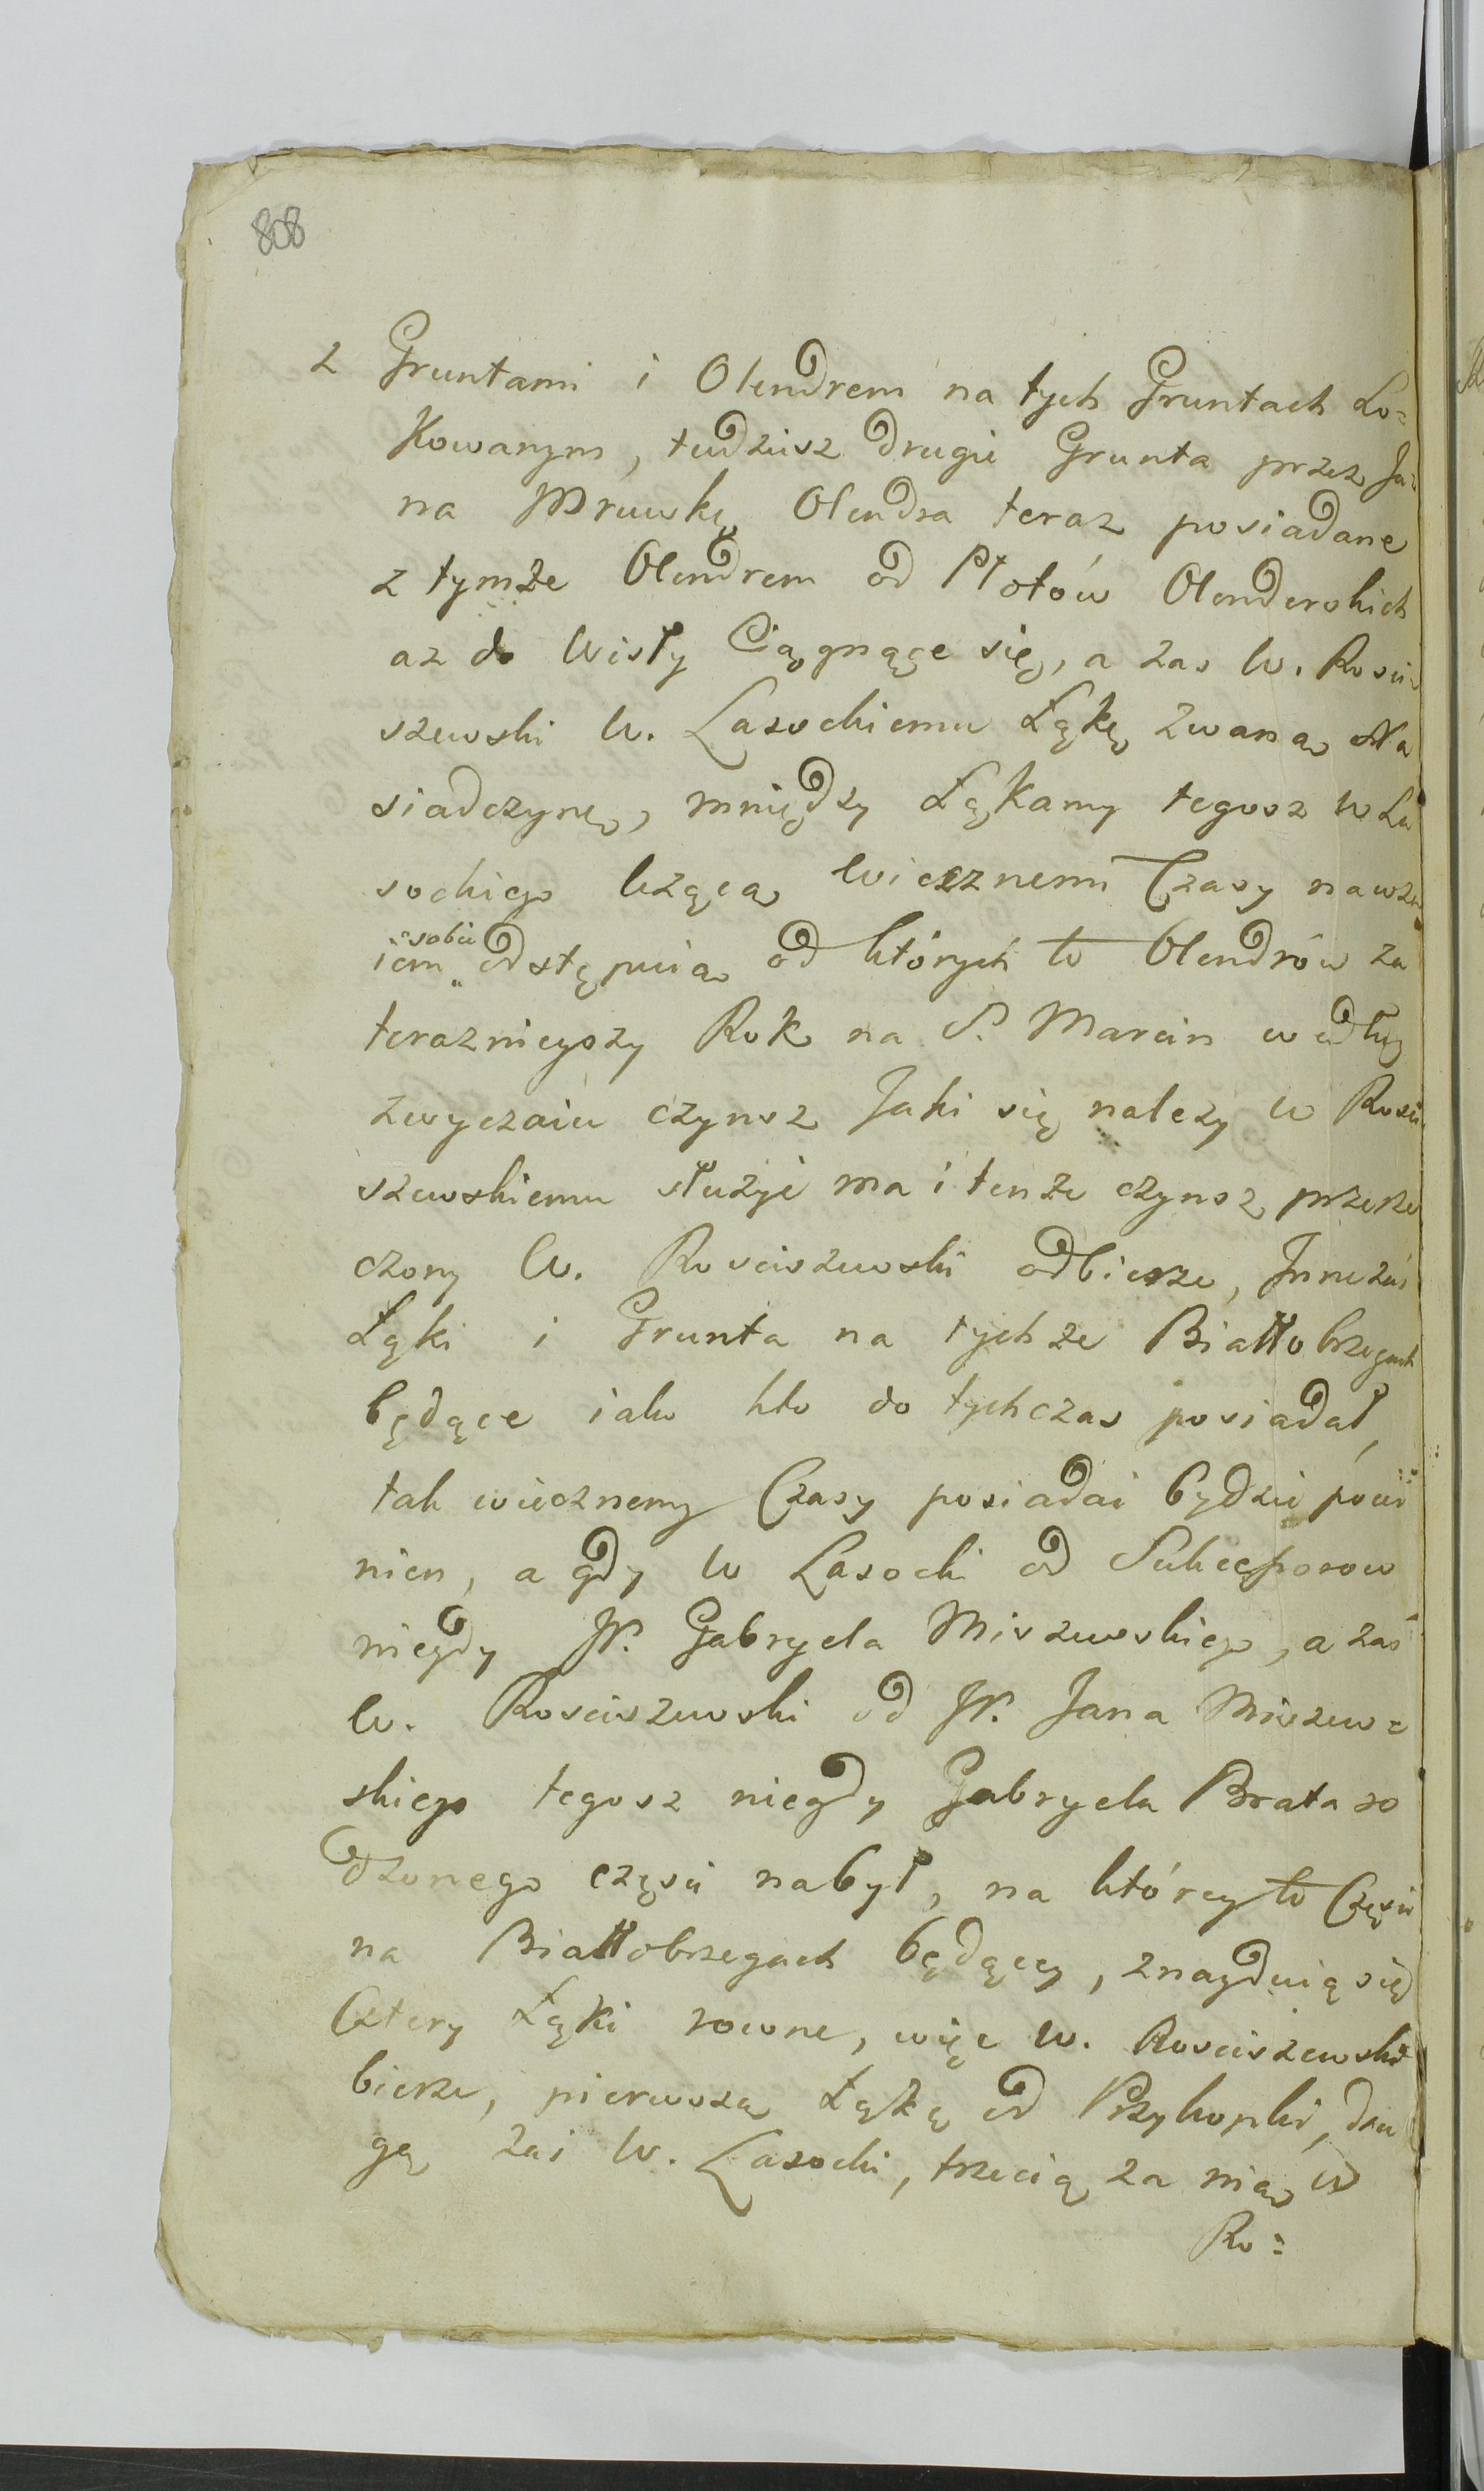 808
z Gruntami i Olendrem na tych Gruntach Lo=
kowanym, tudziesz drugie Grunta przez Ja=
na Mruwkę Olendra teraz posiadane
z tymże Olendrem od Płotów Olenderskich
az do Wisły Ciągnące się, a zas W. Rosci=
szewski W. Lasockiemu Łąkę zwaną Na
siadczynę, mniędzy Łąkamy tegosz W La
sockiego lezącą wiecznemi Czasy nawza
iem sobie odstępuią od których to Olendrów za
teraznieyszy Rok na S. Marcin według
zwyczaiu czynsz Jaki się nalezy W Rosci
szewskiemu słuzyć ma i tenze czynsz przerze
czony W. Rosciszewski odbierze, Jnne zaś
Łąki i Grunta na tychze Białłobrzegach
będące iako kto do tychczas posiadał,
tak wiecznemy Czasy posiadać będzie powi
nien, a gdy W Lasocki od Sukcessorow
niegdy JP. Gabryela Miszewskiego, a zaś
W. Rosciszewski od JP. Jana Miszew=
skiego tegosz niegdy Gabryela Brata ro
dzonego częsci nabył, na którey to Częsci
na Białłobrzegach będącey, znayduią się
Cztery Łąki rowne, więc W. Rosciszewski
bierze, pierwszą Łąkę od Przykopki, dru
gą zaś W. Lasocki, trzecią za nią W
Ro=